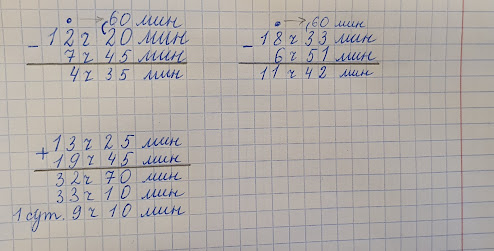 60 мин
- 12ч 20 мин
7ч 45 мин
4ч 35 мин
60 мин
- 18ч 33 мин
6ч 51 мин
11ч 42 мин
+ 13ч 25 мин
19ч 45 мин
32ч 70 мин
33ч 10 мин
1 сут. 9ч 10 мин